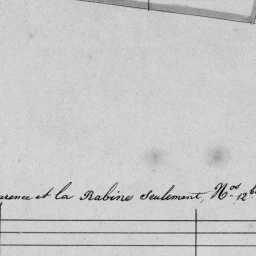 arence et la Rabine seulement, Nos 12 b